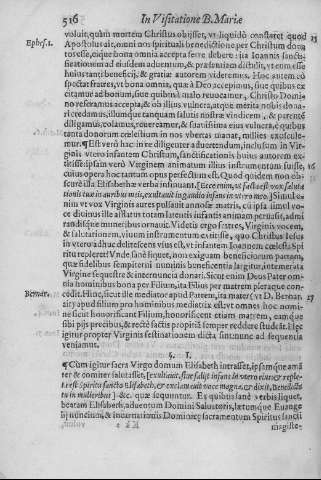 516 In Visitatione B. Mariæ
voluit, quàm mortem Christus obijsset, vt liquidò constaret quod 25
Ephes. 1. Apostolus ait, omni nos spirituali benedictione per Christum dona
tos esse, eique bona omnia accepta ferre debere: ita Ioannis sancti-
ficationem ad eiusdem aduentum, & præsentiam distulit, vt enim esse
huius tanti beneficij, & gratiæ autorem videremus. Hoc autem eò
spectat fratres, vt bona omnia, quæ à Deo accepimus, siue quibus ex
citamur ad bonum, siue quibus à malo reuocamur, Christo Domi-
no referamus accepta, & ob illius vulnera, atque merita nobis dona-
ri credamus, illumque tanquam salutis nostræ vindicem, & parentē
diligamus, colamus, reuereamur, & suauissima eius vulnera, è quibus
tanta donorum cœlestium in nos vbertas manat, millies exoscule-
mur. ¶ Est verò hac in re diligenter aduertendum, inclusum in Vir-
ginis vtero infantem Christum, sanctificationis huius autorem ex-
titisse, ipsam verò Virginem animatum illius instrumentum fuisse, 26
cuius opera hoc tantum opus perfectum est. Quod quidem non ob-
scurè illa Elisabethæ verba insinuant. [Ecce enim, vt facta est vox saluta
tionis tuæ in auribus meis, exultauit in gaudio infans in vtero meo.] Simul e-
nim vt vox Virginis aures pulsauit annosæ matris, cū ipsa simul vo-
ce diuinus ille afflatus totam latentis infantis animam peruasit, admi
randisque muneribus ornauit. Videtis ergo fratres, Virginis vocem,
& salutationem, vel instrumentum extitisse, quo Christus Iesus
in vtero adhuc delitescens vius est, vt infantem Ioannem cœlesti Spi
ritu repleret? Vnde sanè liquet, non exiguam beneficiorum partem,
quæ fidelibus sempiterni numinis beneficentia largitur, intermeata
Virgine sequestre & internuncia donari. Sicut enim Deus Pater om-
nia hominibus bona per Filium, ita Filius per matrem pleraque con-
Bernar. cedit. Hinc, sicut ille mediator apud Patrem, ita mater (vt D. Bernar. 27
ait) apud filium pro hominibus mediatrix est: vt omnes hoc nomi-
ne sicut honorificant Filium, honorificent etiam matrem, eamque
sibi pijs precibus, & rectè factis propitiā semper reddere studeāt. Hęc
igitur propter Virginis festinationem dicta sint: nunc ad sequentia
veniamus.
§. I.
¶ Cùm igitur sacra Virgo domum Elisabeth intrasset, ipsamque amā
ter & comiter salutasset, [exultauit, siue salijt infans in vtero eius: & reple-
ta est Spiritu sancto Elisabeth, & exclamauit voce magna, & dixit, Benedicta
tu in mulieribus] &c. quæ sequuntur. Ex quibus sanè verbis liquet,
beatam Elisabeth, aduentum Domini Saluatoris, lætumque Euange
lij nuncium, & incarnationis Dominicæ sacramentum Spiritus sancti
magiste-